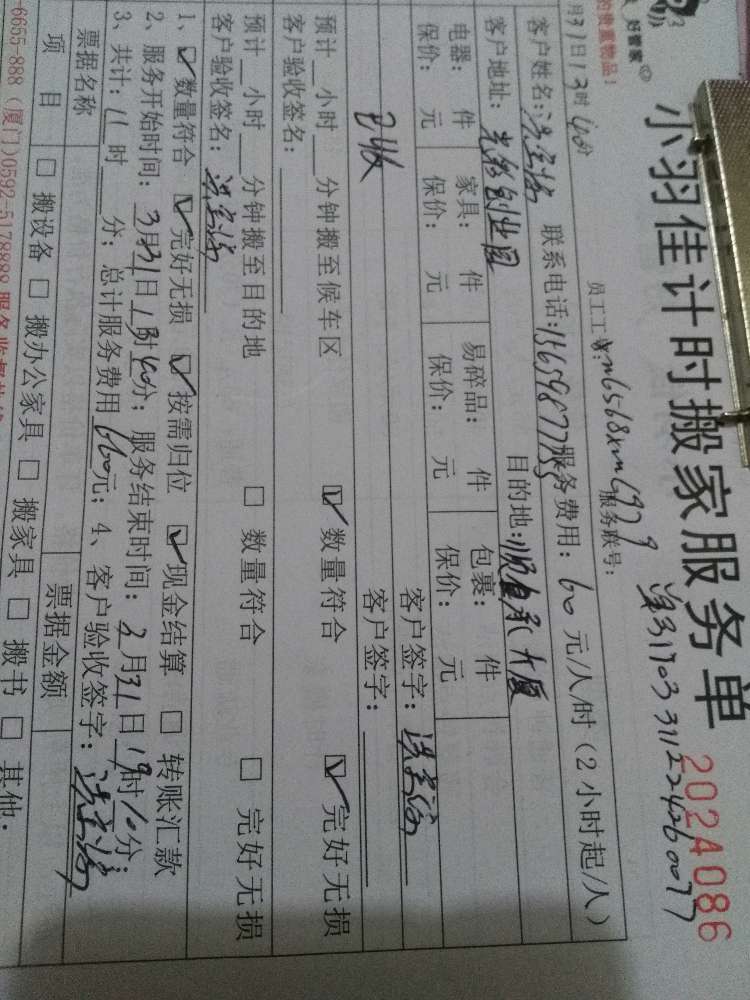 好管家
的贵重物品！
小羽佳计时搬家服务单 2024086
月31日13时40分 员工工号： 服务账号：
客户姓名： 联系电话： 服务费用：60元/人/时（2小时起/人）
客户地址： 创业园 目的地： 大厦
电器： 件 家具： 件 易碎品： 件 包裹： 件
保价： 元 保价： 元 保价： 元 保价： 元
客户签字：
已收 客户签字：
预计 小时 分钟搬至候车区 ☑ 数量符合 ☑ 完好无损
客户验收签名：
预计 小时 分钟搬至目的地 □ 数量符合 □ 完好无损
客户验收签名：
1、☑ 数量符合 ☑ 完好无损 ☑ 按需归位 ☑ 现金结算 □ 转账汇款
2、服务开始时间：3月31日13时40分；服务结束时间：3月31日19时10分；
3、共计：11时 分；总计服务费用660元；4、客户验收签字：
票据名称 票据金额
项目 □ 搬设备 □ 搬办公家具 □ 搬家具 □ 搬书 □ 其他.
6655-888（厦门）0592-5178888